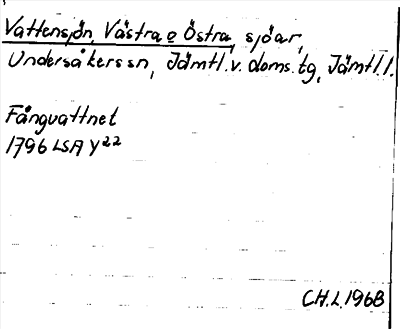 Vattensjön, Västra o Östra, sjöar,
Undersåkers sn, Jämtl. v. doms. tg, Jämtl. l.
Fångvattnet
1796 LSA Y22
C.H.L. 1968